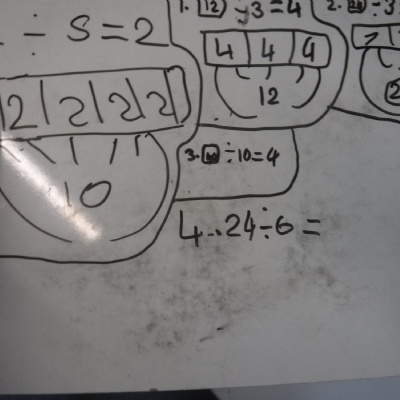 ÷ 5 = 2
2 2 2 2
10
1. 12 ÷ 3 = 4
4 4 4
12
2. ÷ 3
3. ÷ 10 = 4
4.. 24 ÷ 6 =